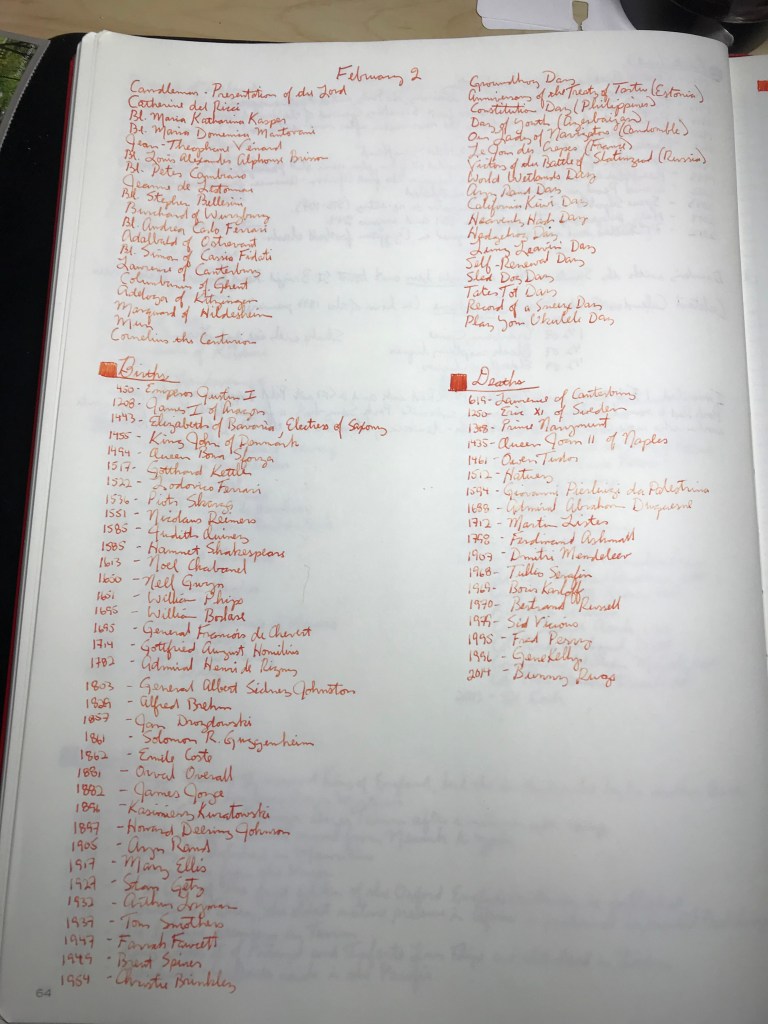 February 2
Candlemas - Presentation of the Lord
Catherine del Ricci
Bl. Maria Katharina Kasper
Bl. Maria Domenica Mantovani
Jean-Theophane Venard
Bl. Louis Alexander Alphonse Brisson
Bl. Peter Cambiano
Jeanne de Lestonnac
Bl. Stephen Bellesini
Burchard of Wurzburg
Bl. Andrea Carlo Ferrari
Adalbald of Ostrevant
Bl. Simon of Cassia Fidati
Laurence of Canterbury
Columbanus of Ghent
Adeloga of Kitzingen
Marquard of Hildesheim
Mun
Cornelius the Centurion
Groundhog Day
Anniversary of the Treaty of Tartu (Estonia)
Constitution Day (Philippines)
Day of Youth (Azerbaijan)
Our Lady of Navigators (Candomble)
Le Jour des Crepes (France)
Victory of the Battle of Stalingrad (Russia)
World Wetlands Day
Ayn Rand Day
California Kiwi Day
Heavenly Hash Day
Hedgehog Day
Jimmy Leavin Day
Self-Renewal Day
Sled Dog Day
Tater Tot Day
Record of a Sneeze Day
Play Your Ukulele Day
Births
450 - Emperor Justin I
1208 - James I of Aragon
1443 - Elizabeth of Bavaria, Electress of Saxony
1455 - King John of Denmark
1494 - Queen Bona Sforza
1517 - Gotthard Kettler
1522 - Lodovico Ferrari
1536 - Piotr Skarga
1551 - Nicolaus Reimers
1585 - Judith Quiney
1585 - Hamnet Shakespeare
1613 - Noel Chabanel
1650 - Nell Gwyn
1651 - William Phips
1695 - William Borlase
1695 - General Francois de Chevert
1714 - Gottfried August Homilius
1782 - Admiral Henri de Rigny
1803 - General Albert Sidney Johnston
1829 - Alfred Brehm
1857 - Jan Drozdowski
1861 - Solomon R. Guggenheim
1862 - Emile Coste
1881 - Orval Overall
1882 - James Joyce
1896 - Kasimierz Kuratowski
1897 - Howard Deering Johnson
1905 - Ayn Rand
1917 - Mary Ellis
1927 - Stan Getz
1932 - Arthur Lyman
1937 - Tom Smothers
1947 - Farrah Fawcett
1949 - Brent Spiner
1954 - Christie Brinkley
Deaths
619 - Laurence of Canterbury
1250 - Eric XI of Sweden
1348 - Prince Narymunt
1435 - Queen Joan II of Naples
1461 - Owen Tudor
1512 - Hatuey
1594 - Giovanni Pierluigi da Palestrina
1688 - Admiral Abraham Duquesne
1712 - Martin Lister
1798 - Ferdinand Ashmall
1907 - Dmitri Mendeleev
1968 - Tullio Serafin
1969 - Boris Karloff
1970 - Bertrand Russell
1979 - Sid Vicious
1995 - Fred Perry
1996 - Gene Kelly
2014 - Bunny Rugs
64